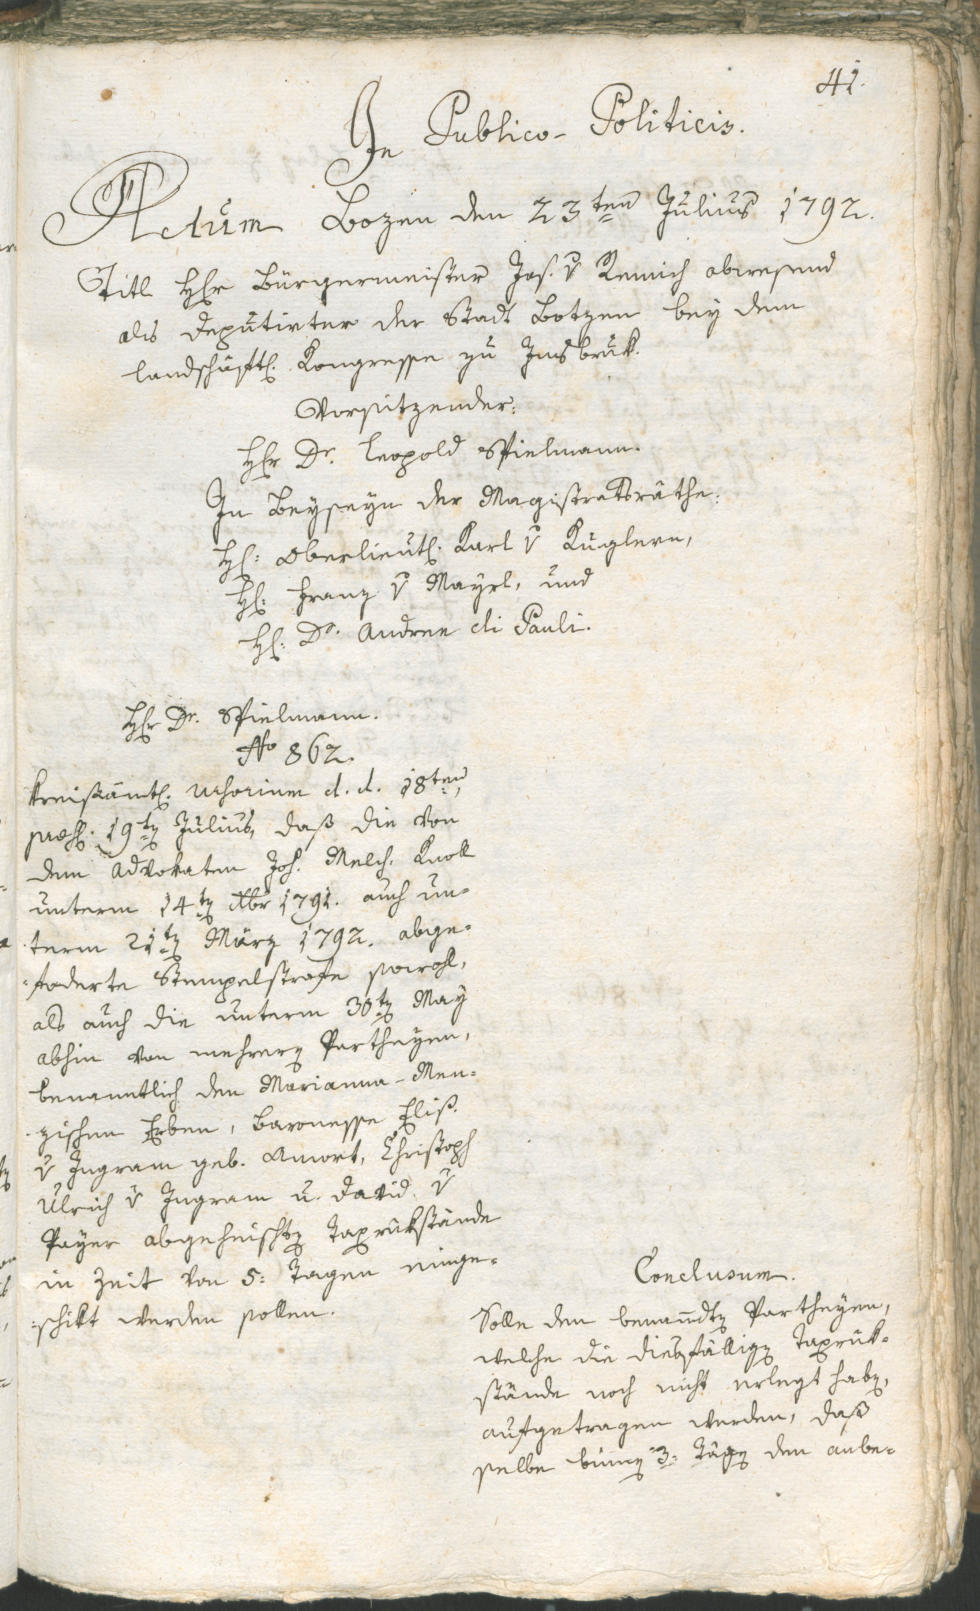 41.
In Publico-Politicis.
Actum Bozen den 23ten Julius 1792.
Titl. Hhr Bürgermeister Jos. v Remich abwesend
als Deputirter der Stadt Botzen bey dem
landschäftl. Kongresse zu Insbruk.
Vorsitzender:
Hhr Dr. Leopold Spielmann.
In Beyseyn der Magistratsräthe:
Hl: Oberlieut. Karl v Kuglern,
Hl: Franz v Mayrl, und
Hl: Dr. Andree di Pauli.
Hhr Dr. Spielmann.
No 862.
Kreißämtl. Urhorium d. d. 18ten,
præs. 19ten Julius, daß die von
dem Advokaten Joh. Melch. Knoll
unterm 14ten Xbr 1791. auch un-
term 21ten März 1792. abge-
foderte Stempelstrafe sowohl,
als auch die unterm 30ten May
abhin von mehrern Partheyen,
benanntlich den Marianna-Men-
zischen Erben, Baronesse Elis.
v Ingram geb. Amort, Christoph
Ulrich v Ingram u. David v
Payer abgeheischten Taxrükstände
in Zeit von 5: Tagen einge-
schikt werden sollen.
Conclusum.
Solle den benanndten Partheyen,
welche die diesfälligen Taxrük-
stände noch nicht erlegt haben,
aufgetragen werden, daß
selbe binnen 3: Tägen den anbe-